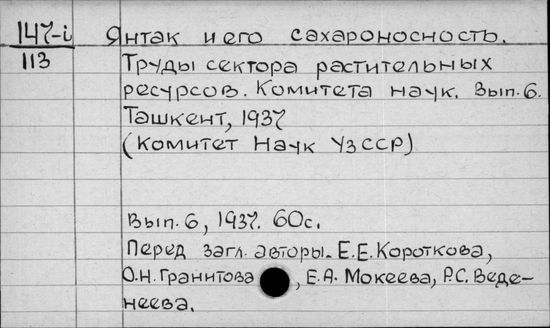 147-i
113
Янтак и его сахароносность.
Труды сектора растительных
ресурсов. Комитета наук. Вып. 6.
Ташкент, 1937
(Комитет Наук УзССР)
Вып. 6, 1937. 60с.
Перед загл. авторы. Е.Е. Короткова,
О.Н. Гранитова, Е.А. Мокеева, Р.С. Веде-
неева.